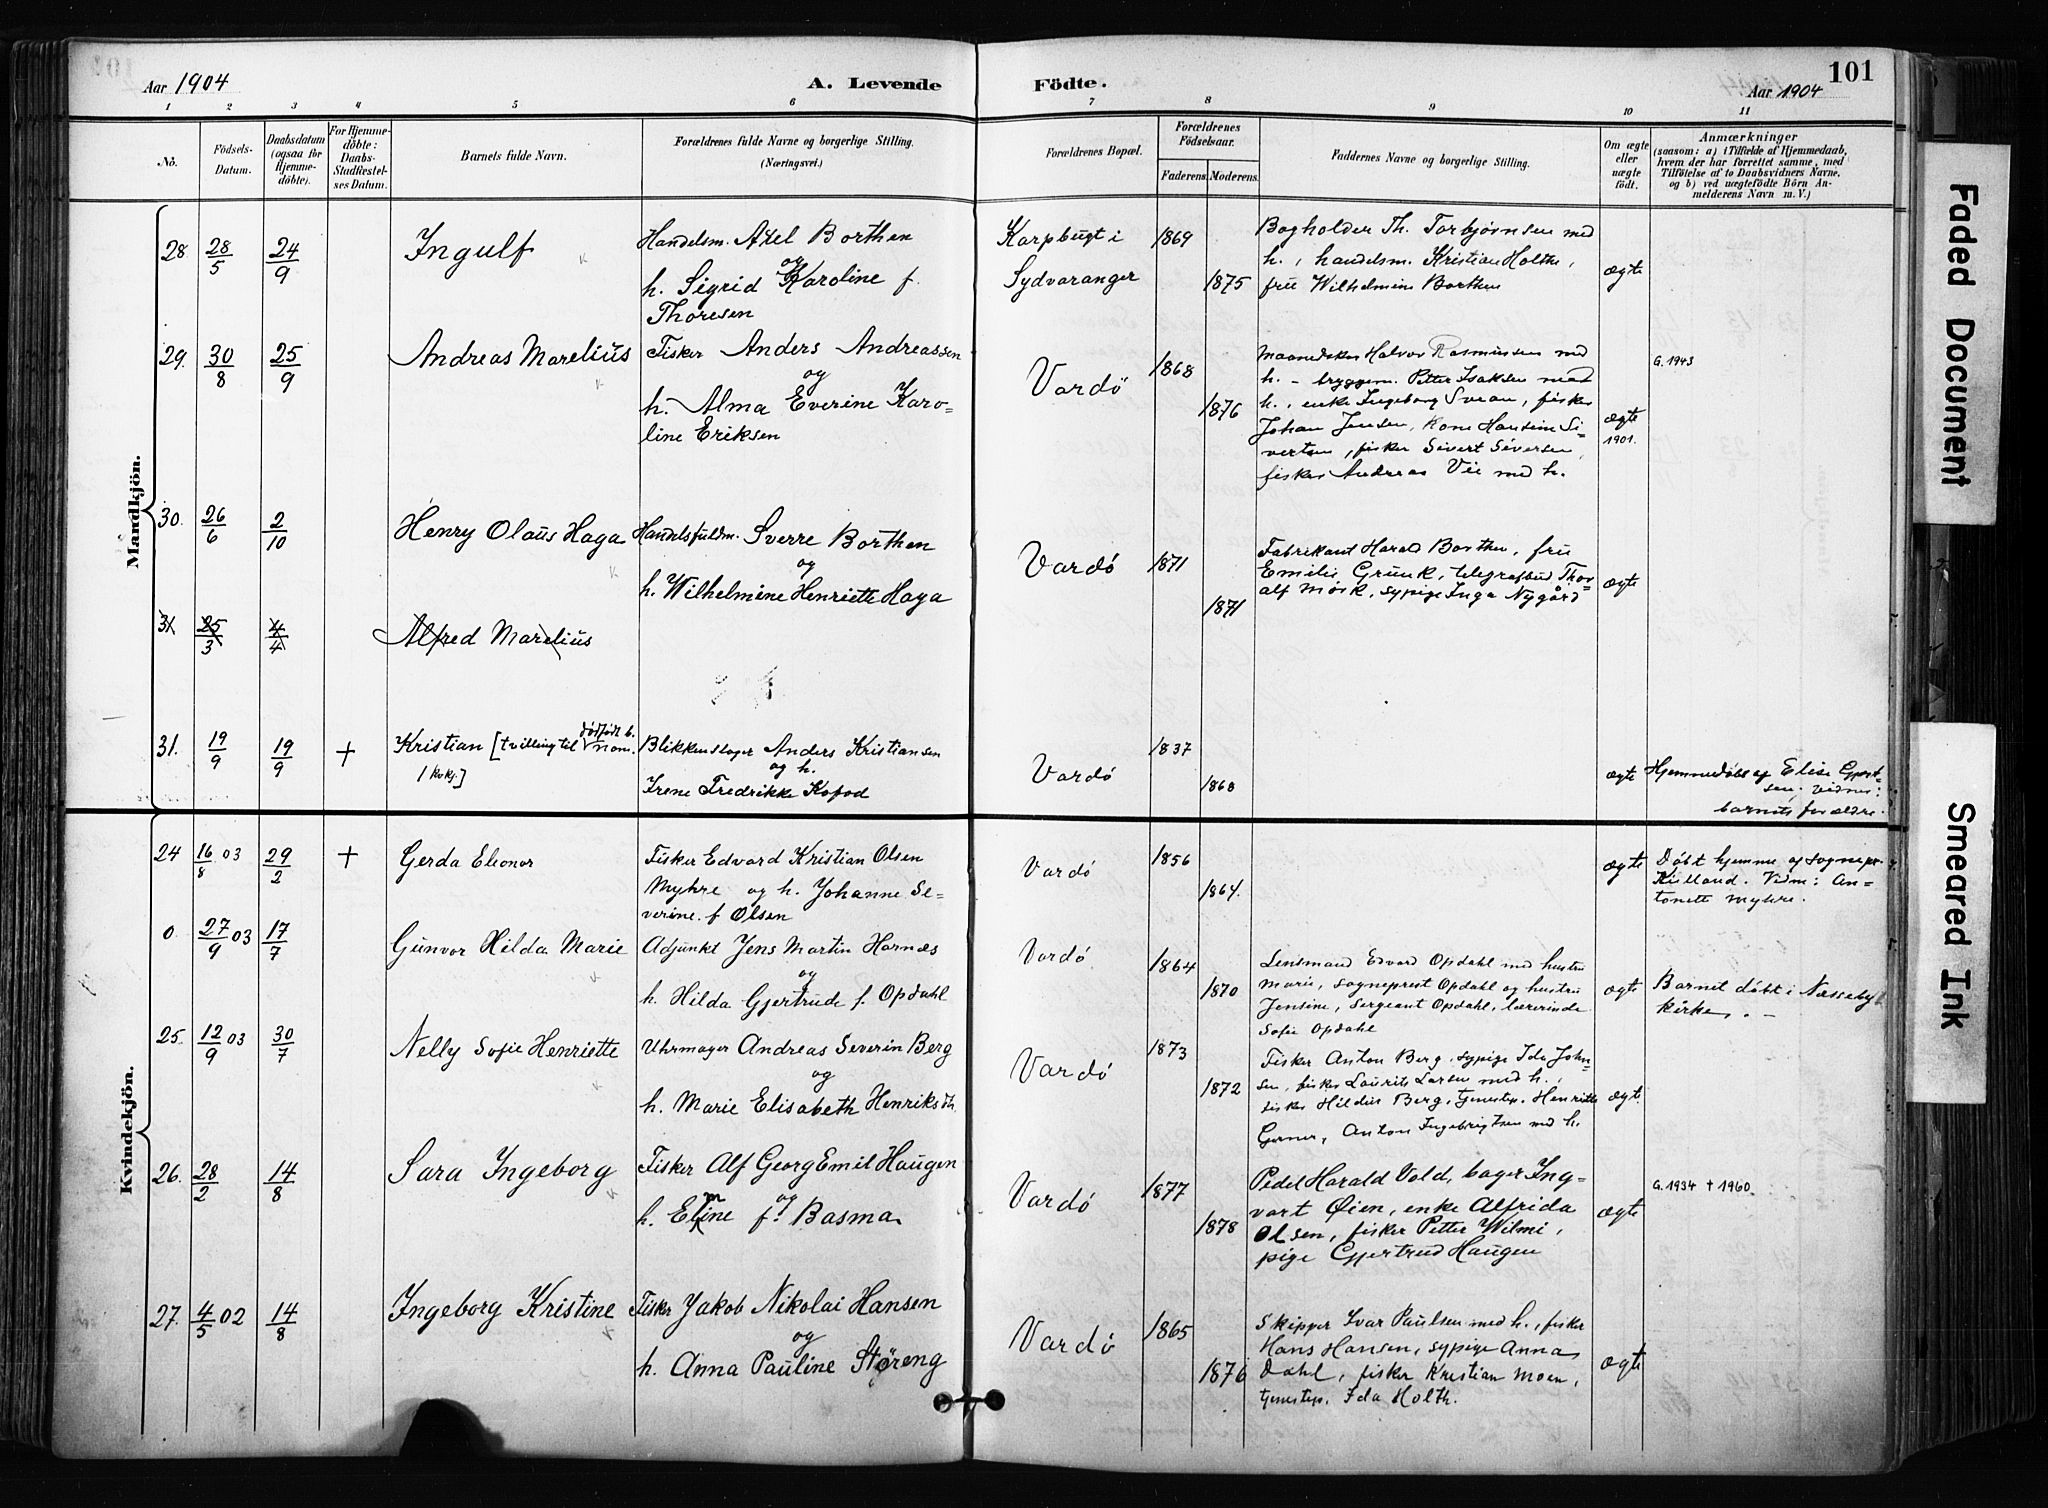 Aar 1904
A. Levende
Födte.
101
Aar 1904
1 2 3 4 5 6 7 8 9 10 11
No.
Födsels-Datum.
Daabsdatum (ogsaa for Hjemme-döbte).
For Hjemme-döbte: Daabs-Stadfæstel-ses Datum.
Barnets fulde Navn.
Forældrenes fulde Navne og borgerlige Stilling. (Næringsvei.)
Forældrenes Bopæl.
Forældrenes Födselsaar.
Faderens. Moderens.
Faddernes Navne og borgerlige Stilling.
Om ægte eller uægte födt.
Anmærkninger
(saasom: a) i Tilfælde af Hjemmedaab,
hvem der har forrettet samme, med
Tilföielse af to Daabsvidners Navne,
og b) ved uægtefödte Börn An-
melderens Navn m. V.)
Mandkjön.
28. 28/5 24/9 Ingulf
Handelsm. Axel Borthen
og
h. Sigrid Karoline f.
Thoresen
Karpbugt i
Sydvaranger
1869
1875
Bogholder Th. Torbjørnsen med
h., handelsm. Kristian Holthe,
frue Wilhelmine Borthen
ægte
29. 30/8 25/9 Andreas Marelius
Fisker Anders Andreassen
og
h. Alma Everine Karo-
line Eriksen
Vardö
1868
1876
Maanedskar Halvor Rasmussen med
h. – bryggem. Petter Isaksen med
h., enke Ingeborg Svean, fisker
Johan Jensen, kone Hansine Si-
vertsen, fisker Sivert Siversen,
fisker Andreas Vie med h.
ægte
1901.
G. 1943
30. 26/6 2/10 Henry Olaus Haga
Handelsfuldm. Sverre Borthen
og
h. Wilhelmine Henriette Haga
Vardö
1871
1871
Fabrikant Harald Borthen, frue
Emilie Grunk, telegrafbud Thor-
alf Mørk, sypige Inga Nygård
ægte
31 25/3 4/4 Alfred Marelius
31. 19/9 19/9 + Kristian [tvilling til dødfødt b.
nom.
1 kvkj.]
Blikkenslager Anders Kristiansen
og h.
Irene Fredrikke Kofod
Vardö
1837
1868
ægte
Hjemmedøbt af Elise Gjert-
sen; vidner:
barnets forældre.
Kvindekjön.
24 16/8 03 29/2 + Gerda Eleonor
Fisker Edvard Kristian Olsen
Myhre og h. Johanne Se-
verine f. Olsen
Vardö
1856
1864.
ægte
Döbt hjemme af sognepr.
Kielland. Vidn: An-
tonette Myhre.
0. 27/9 03 17/7 Gunvor Hilda Marie
Adjunkt Jens Martin Harnæs
og
h. Hilda Gjertrude f. Opdahl
Vardö
1864
1870
Lensmand Edvard Opdahl med hustru
Marie, sogneprest Opdahl og hustru
Jensine, Sergeant Opdahl, lærerinde
Sofie Opdahl
ægte
Barnet döbt i Næsseby
kirke. –
25. 12/9 03 30/7 Nelly Sofie Henriette
Uhrmager Andreas Severin Berg
og
h. Marie Elisabeth Henriksdtr.
Vardö
1873
1872
Fisker Anton Berg, sypige Ida John-
sen, fisker Laurits Larsen med h.,
fisker Hildus Berg, tjenestep. Henriette
Gerner, Anton Ingebrigtsen med h.
ægte
26. 28/2 14/8 Sara Ingeborg
Fisker Alf Georg Emil Haugen
og
h. Emine f. Basma
Vardö
1877
1878
Pedel Harald Vold, bager Ing-
vart Øien, enke Alfrida
Olsen, fisker Petter Wilmi,
pige Gjertrud Haugen
ægte
G. 1934 † 1960.
27. 4/5 02 14/8 Ingeborg Kristine
Fisker Jakob Nikolai Hansen
og
h. Anna Pauline Støreng
Vardö
1865
1876
Skipper Ivar Paulsen med h., fisker
Hans Hansen, sypige Anna
Dahl, fisker Kristian Moen,
tjenestep. Ida Holth.
ægte
Faded Document
Smeared Ink